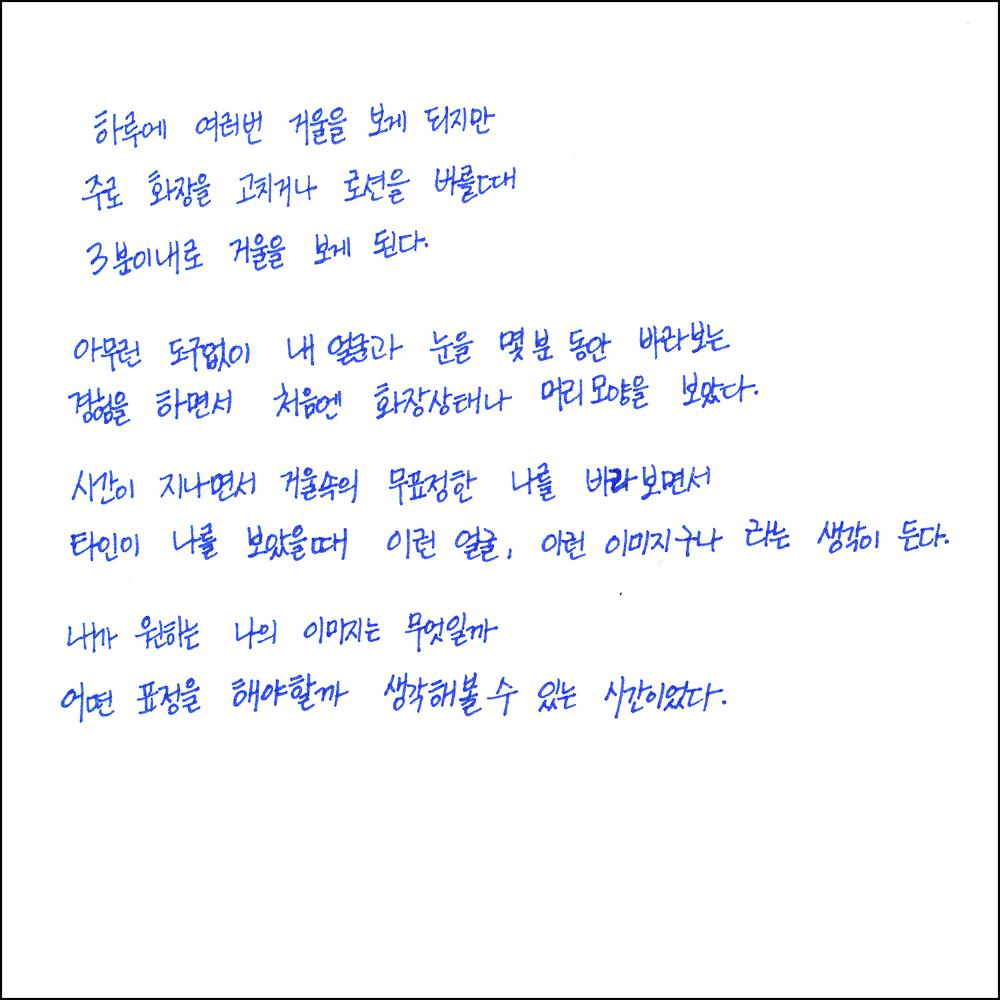 하루에 여러번 거울을 보게 되지만
주로 화장을 고치거나 로션을 바를때
3분이내로 거울을 보게 된다.
아무런 도구없이 내 얼굴과 눈을 몇 분 동안 바라보는
경험을 하면서 처음엔 화장상태나 머리모양을 보았다.
시간이 지나면서 거울속의 무표정한 나를 바라보면서
타인이 나를 보았을때 이런 얼굴, 이런 이미지구나 라는 생각이 든다.
내가 원하는 나의 이미지는 무엇일까
어떤 표정을 해야할까 생각해볼 수 있는 시간이었다.